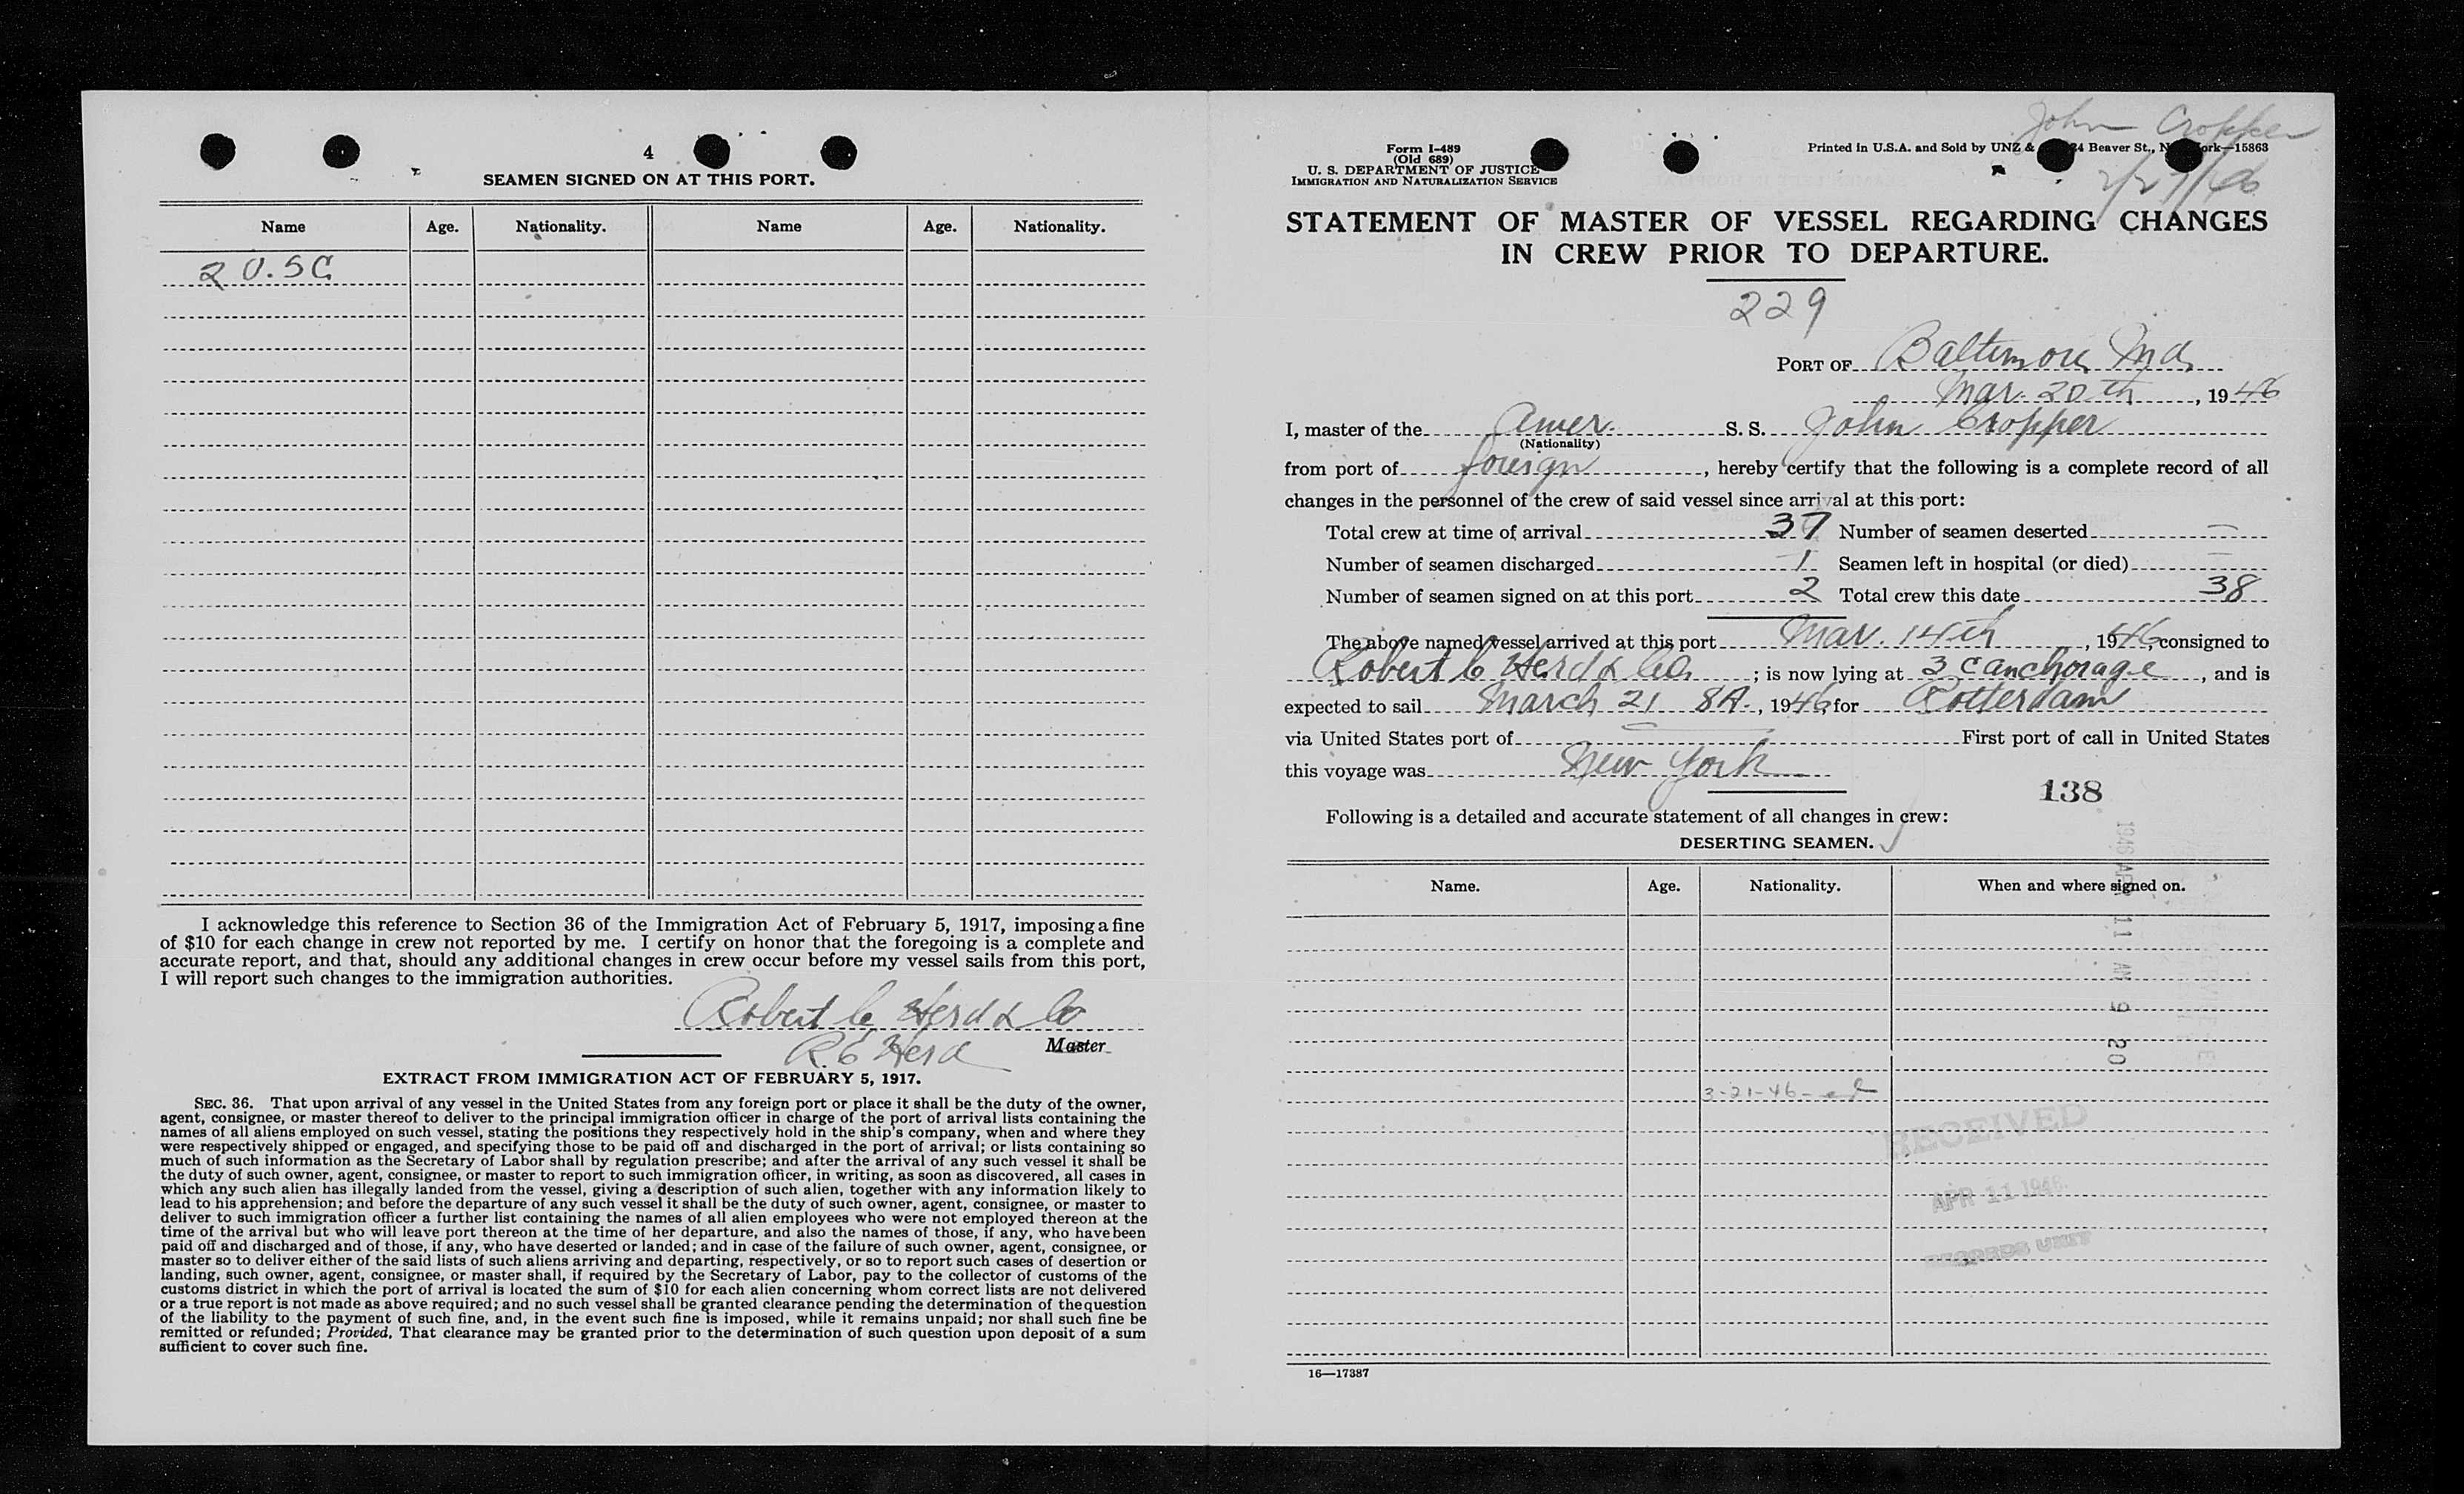 4
SEAMEN SIGNED ON AT THIS PORT.
Name Age. Nationality. Name Age. Nationality.
2 U.S C
I acknowledge this reference to Section 36 of the Immigration Act of February 5, 1917, imposing a fine
of $10 for each change in crew not reported by me. I certify on honor that the foregoing is a complete and
accurate report, and that, should any additional changes in crew occur before my vessel sails from this port,
I will report such changes to the immigration authorities.
Robert C Herd & Co
R E Herd Master
EXTRACT FROM IMMIGRATION ACT OF FEBRUARY 5, 1917.
SEC. 36. That upon arrival of any vessel in the United States from any foreign port or place it shall be the duty of the owner,
agent, consignee, or master thereof to deliver to the principal immigration officer in charge of the port of arrival lists containing the
names of all aliens employed on such vessel, stating the positions they respectively hold in the ship's company, when and where they
were respectively shipped or engaged, and specifying those to be paid off and discharged in the port of arrival; or lists containing so
much of such information as the Secretary of Labor shall by regulation prescribe; and after the arrival of any such vessel it shall be
the duty of such owner, agent, consignee, or master to report to such immigration officer, in writing, as soon as discovered, all cases in
which any such alien has illegally landed from the vessel, giving a description of such alien, together with any information likely to
lead to his apprehension; and before the departure of any such vessel it shall be the duty of such owner, agent, consignee, or master to
deliver to such immigration officer a further list containing the names of all alien employees who were not employed thereon at the
time of the arrival but who will leave port thereon at the time of her departure, and also the names of those, if any, who have been
paid off and discharged and of those, if any, who have deserted or landed; and in case of the failure of such owner, agent, consignee, or
master so to deliver either of the said lists of such aliens arriving and departing, respectively, or so to report such cases of desertion or
landing, such owner, agent, consignee, or master shall, if required by the Secretary of Labor, pay to the collector of customs of the
customs district in which the port of arrival is located the sum of $10 for each alien concerning whom correct lists are not delivered
or a true report is not made as above required; and no such vessel shall be granted clearance pending the determination of the question
of the liability to the payment of such fine, and, in the event such fine is imposed, while it remains unpaid; nor shall such fine be
remitted or refunded; Provided, That clearance may be granted prior to the determination of such question upon deposit of a sum
sufficient to cover such fine.
John Cropper
2/27/46
Form I-489
(Old 689)
U. S. DEPARTMENT OF JUSTICE
IMMIGRATION AND NATURALIZATION SERVICE
Printed in U.S.A. and Sold by UNZ & 24 Beaver St., N ork—15863
STATEMENT OF MASTER OF VESSEL REGARDING CHANGES
IN CREW PRIOR TO DEPARTURE.
229
PORT OF Baltimore Md.
Mar. 20th, 1946
I, master of the Amer. S. S. John Cropper
(Nationality)
from port of foreign, hereby certify that the following is a complete record of all
changes in the personnel of the crew of said vessel since arrival at this port:
Total crew at time of arrival 37 Number of seamen deserted —
Number of seamen discharged 1 Seamen left in hospital (or died) —
Number of seamen signed on at this port 2 Total crew this date 38
The above named vessel arrived at this port Mar. 14th, 1946, consigned to
Robert C Herd & Co.; is now lying at 3 C anchorage, and is
expected to sail March 21 8A., 1946, for Rotterdam
via United States port of — First port of call in United States
this voyage was New York
138
Following is a detailed and accurate statement of all changes in crew:
DESERTING SEAMEN.
Name. Age. Nationality. When and where signed on.
1946 APR 11 AM 9 20
3-21-46-
RECEIVED
APR 11 1946
RECORDS UNIT
16—17387